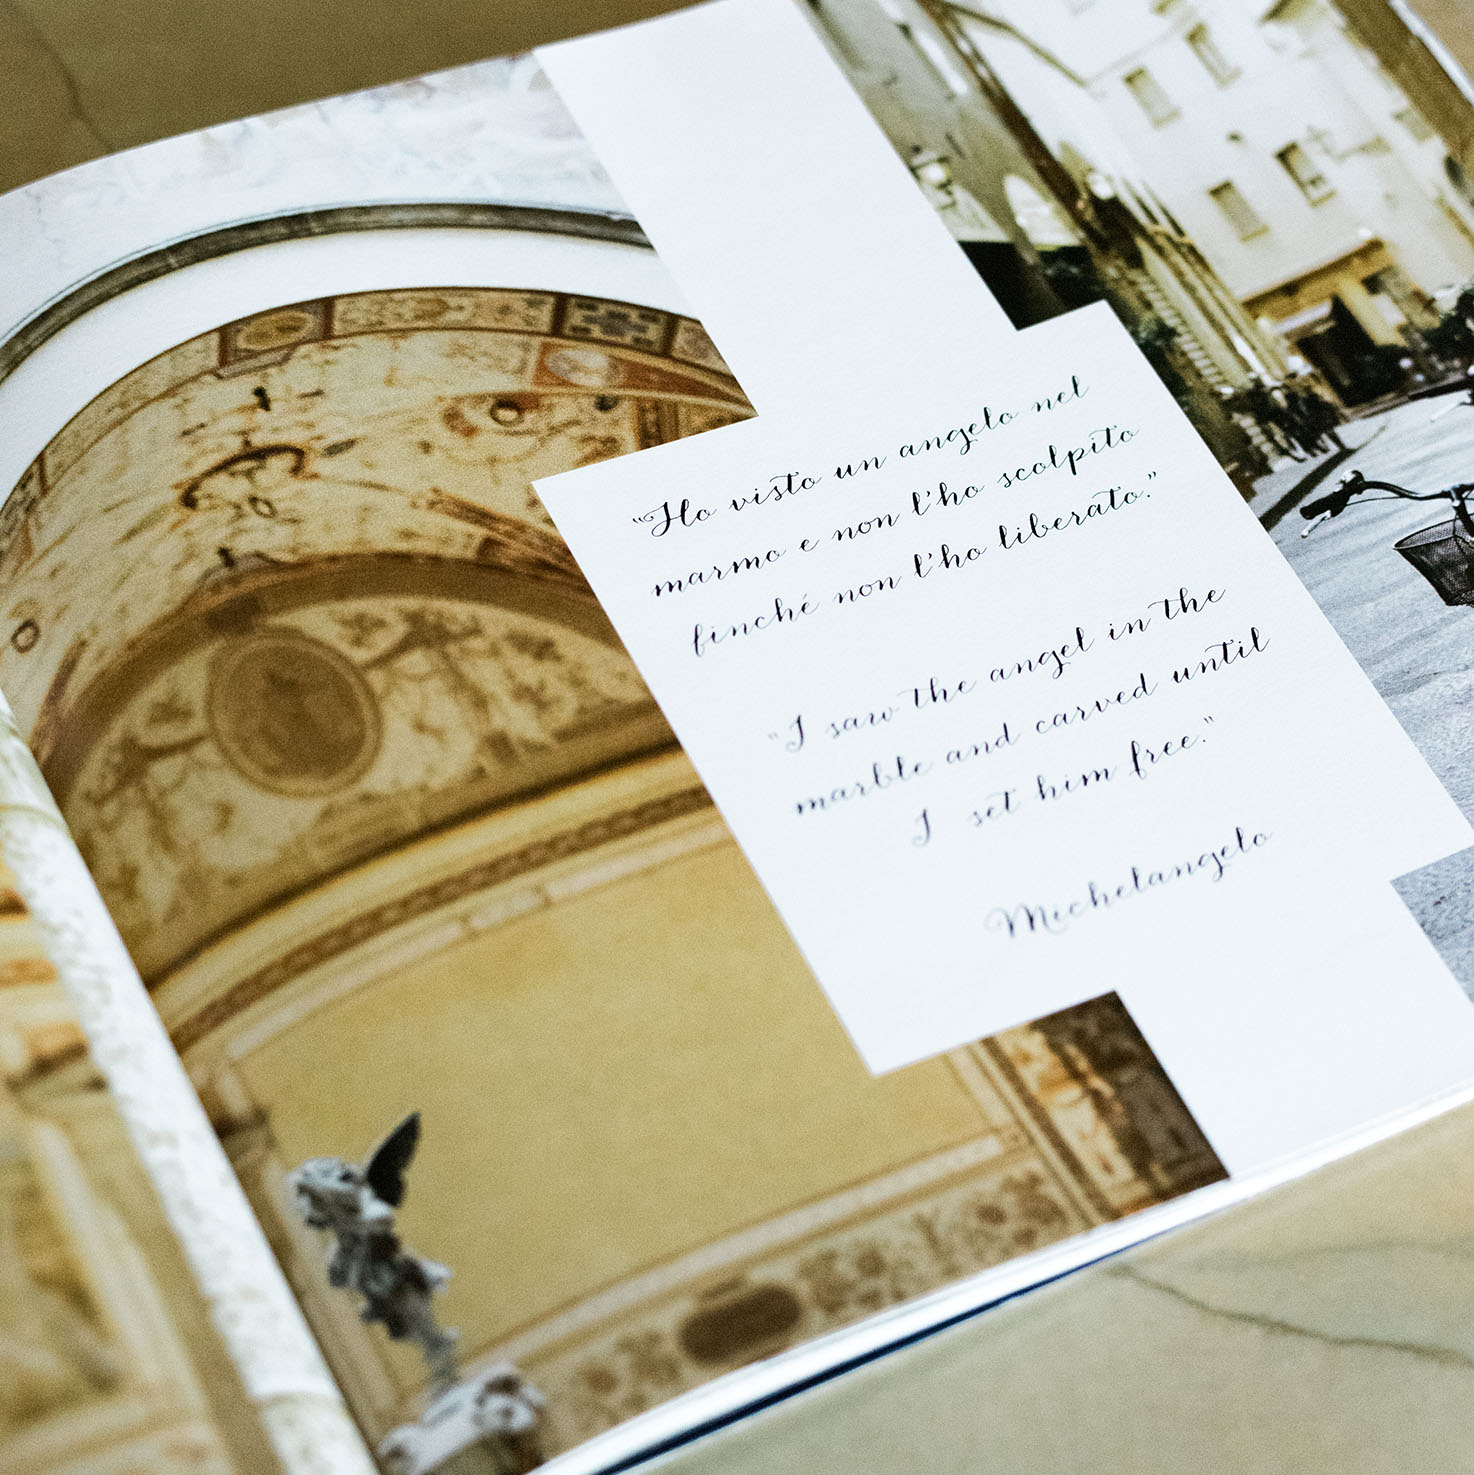 "Ho visto un angelo nel
marmo e non l'ho scolpito
finché non l'ho liberato."
"I saw the angel in the
marble and carved until
I set him free."
Michelangelo